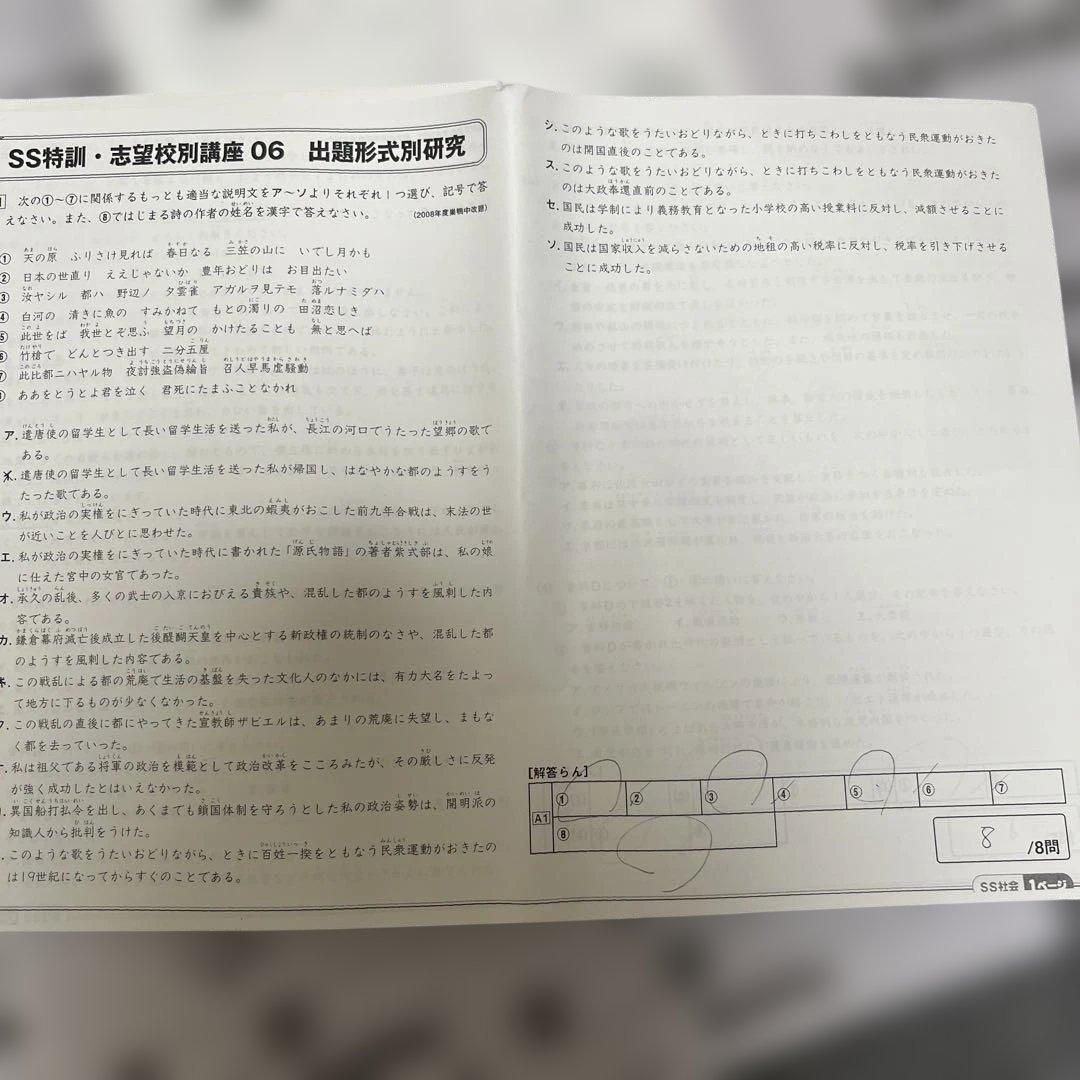 SS特訓・志望校別講座 06 出題形式別研究
次の①〜⑦に関係するもっとも適当な説明文をア〜ソよりそれぞれ1つ選び、記号で答
えなさい。また、⑧ではじまる詩の作者の姓名を漢字で答えなさい。 (2008年度巣鴨中改題)
① 天の原 ふりさけ見れば 春日なる 三笠の山に いでし月かも
② 日本の世直り ええじゃないか 豊年おどりは お目出たい
③ 汝ヤシル 都ハ 野辺ノ 夕雲雀 アガルヲ見テモ 落ルナミダハ
④ 白河の 清きに魚の すみかねて もとの濁りの 田沼恋しき
⑤ 此世をば 我世とぞ思ふ 望月の かけたることも 無と思へば
⑥ 竹槍で どんとつき出す 二分五厘
⑦ 此比都ニハヤル物 夜討強盗偽綸旨 召人早馬虚騒動
ああをとうとよ君を泣く 君死にたまふことなかれ
ア. 遣唐使の留学生として長い留学生活を送った私が、長江の河口でうたった望郷の歌で
ある。
イ. 遣唐使の留学生として長い留学生活を送った私が帰国し、はなやかな都のようすをう
たった歌である。
ウ. 私が政治の実権をにぎっていた時代に東北の蝦夷がおこした前九年合戦は、末法の世
が近いことを人びとに思わせた。
エ. 私が政治の実権をにぎっていた時代に書かれた「源氏物語」の著者紫式部は、私の娘
に仕えた宮中の女官であった。
オ. 承久の乱後、多くの武士の入京におびえる貴族や、混乱した都のようすを風刺した内
容である。
カ. 鎌倉幕府滅亡後成立した後醍醐天皇を中心とする新政権の統制のなさや、混乱した都
のようすを風刺した内容である。
キ. この戦乱による都の荒廃で生活の基盤を失った文化人のなかには、有力大名をたよっ
て地方に下るものが少なくなかった。
ク. この戦乱の直後に都にやってきた宣教師ザビエルは、あまりの荒廃に失望し、まもな
く都を去っていった。
ケ. 私は祖父である将軍の政治を模範として政治改革をこころみたが、その厳しさに反発
が強く成功したとはいえなかった。
異国船打払令を出し、あくまでも鎖国体制を守ろうとした私の政治姿勢は、開明派の
知識人から批判をうけた。
このような歌をうたいおどりながら、ときに百姓一揆をともなう民衆運動がおきたの
は19世紀になってからすぐのことである。
シ. このような歌をうたいおどりながら、ときに打ちこわしをともなう民衆運動がおきた
のは開国直後のことである。
ス. このような歌をうたいおどりながら、ときに打ちこわしをともなう民衆運動がおきた
のは大政奉還直前のことである。
セ. 国民は学制により義務教育となった小学校の高い授業料に反対し、減額させることに
成功した。
ソ. 国民は国家収入を減らさないための地租の高い税率に反対し、税率を引き下げさせる
ことに成功した。
[解答らん]
A1 ① ② ③ ④ ⑤ ⑥ ⑦
⑧
8 /8問
SS社会 1ページ